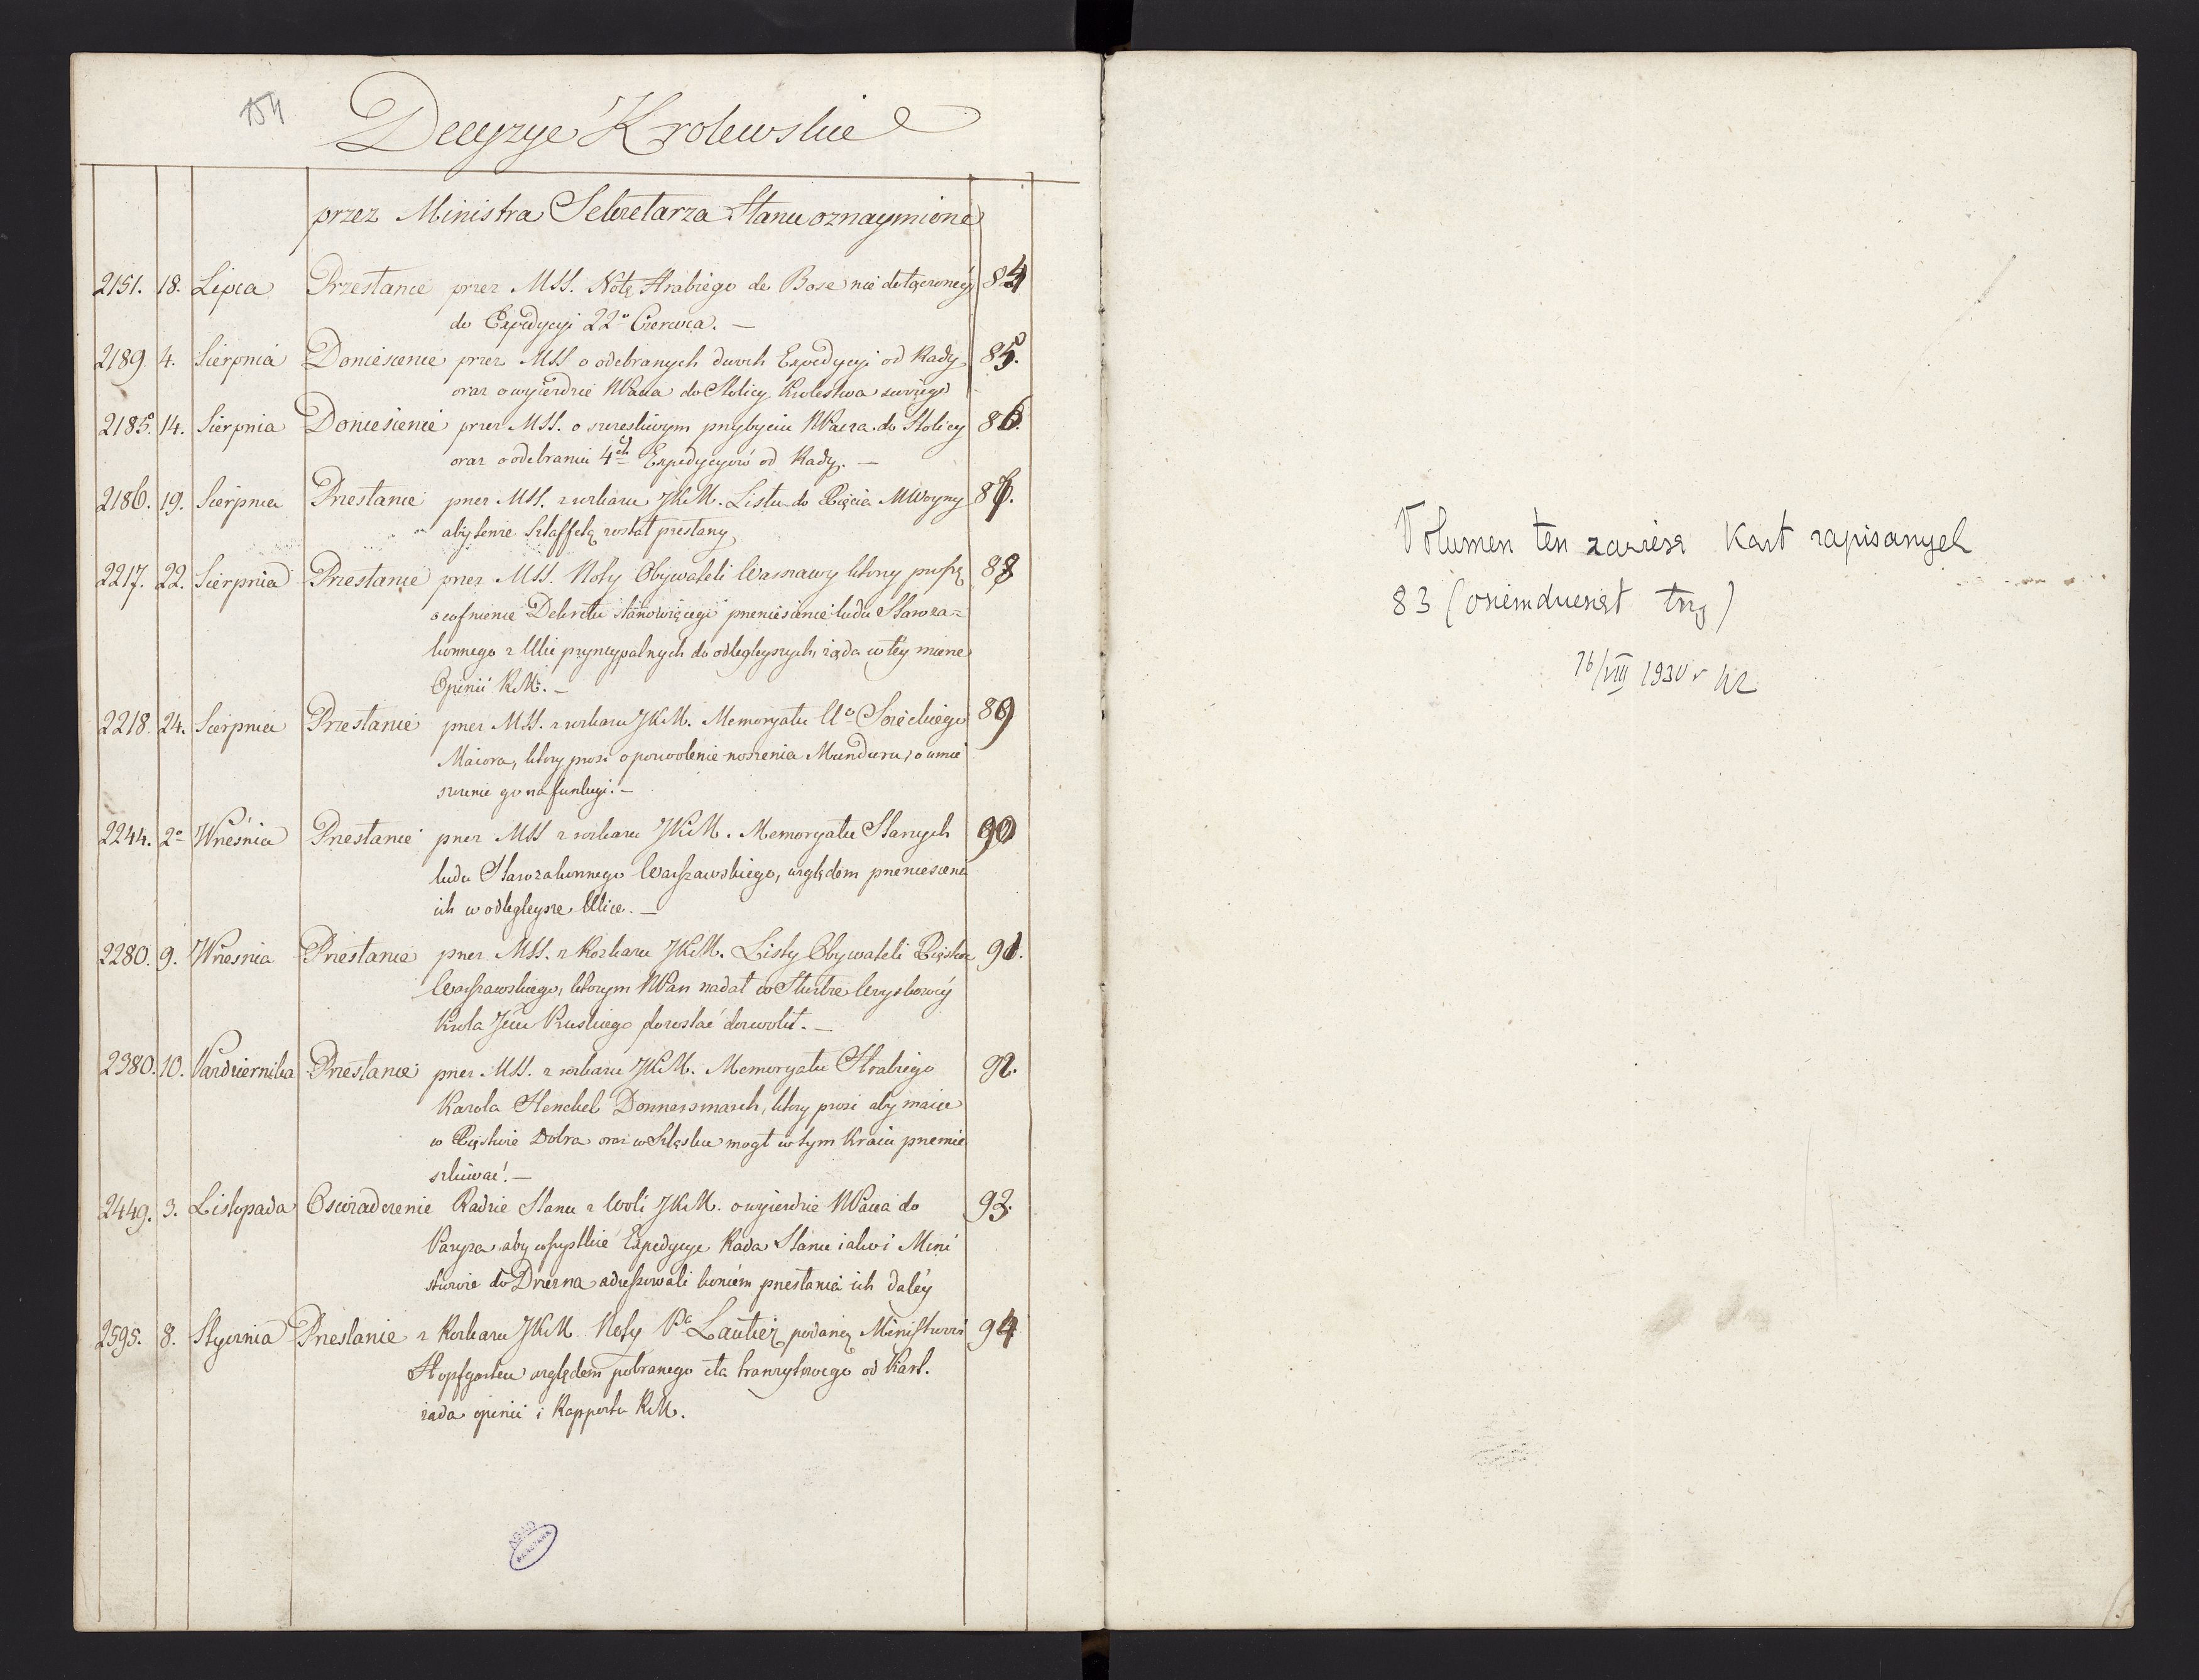 154
Decyzye Krolewskie
przez Ministra Sekretarza Stanu oznaymione
2151. 18. Lipca Przesłanie przez MSS. Notę Hrabiego de Bose nie dołączoney 84
do Expedycyi 22º Czerwca. —
2189. 4. Sierpnia Doniesienie przez MSS o odebranych dwoch Expedycyi od Rady 85.
oraz o wyieździe NPana do Stolicy Krolestwa swoiego
2185. 14. Sierpnia Doniesienie przez MSS. o szczesliwym przybyciu NPana do Stolicy 86.
oraz o odebraniu 4ch Expedycyów od Rady. —
2186. 19. Sierpnia Przesłanie przez MSS. z rozkazu JKM. Listu do Xięcia MWoyny 87.
aby tenże Sztaffetą został przesłany
2217. 22. Sierpnia Przesłanie przez MSS. Noty Obywateli Warszawy ktorzy proszą 88
o cofnienie Dekretu stanowiącego przeniesienie ludu Staroza=
konnego z Ulic pryncypalnych do odlegleyszych, żąda w tey mierze
Opinii RM. —
2218. 24. Sierpnia Przesłanie przez MSS. z rozkazu JKM. Memoryału Uº Soieckiego 89
Maiora, ktory prosi o pozwolenie noszenia Munduru, o umie
szczenie go na funkcyi. —
2244. 2º Września Przesłanie przez MSS z rozkazu JKM. Memoryału Starszych 90
ludu Starozakonnego Warszawskiego, względem przeniesienia
ich w odlegleysze Ulice. —
2280. 9. Wrzesnia Przesłanie przez MSS. z Rozkazu JKM. Listy Obywateli Xięstwa 91.
Warszawskiego, ktorym NPan nadal w Służbie Woyskowey
Krola Jmci Pruskiego pozostać dozwolił. —
2380. 10. Pazdziernika Przesłanie przez MSS. z rozkazu JKM. Memoryału Hrabiego 92.
Karola Henckel Donnersmarck, ktory prosi aby maiąc
w Xięstwie Dobra oraz w Szląsku mogł w tym Kraiu przemie
szkiwać. —
2449. 3. Listopada Oswiadczenie Radzie Stanu z Woli JKM. o wyieździe NPana do 93.
Paryża aby wszystkie Expedycye Rada Stanu iako i Mini
strowie do Drezna adressowali koniem przesłania ich daley
2595. 8. Stycznia Przesłanie z Rozkazu JKM Noty Pª Lautier podaney Ministrowi 94
Hopfgarten względem pobranego cła tranzytowego od Kart.
żąda opinii i Rapportu RM.
Volumen ten zawiera kart zapisanych
83 (osiemdziesiąt trzy)
16/VIII 1930 r